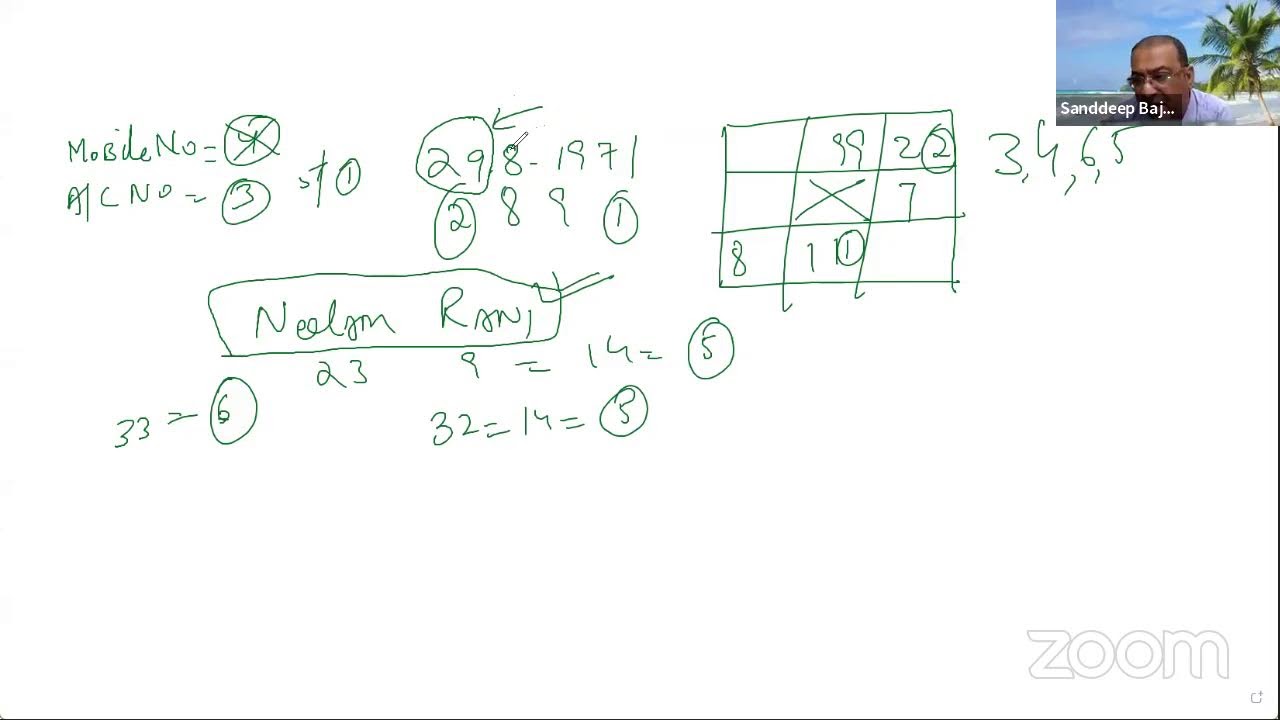 Sanddeep Baj...
Mobile No = 4
A/C No = 3
29.8-1971
2 8 9 1
99 22
7
8 1 1 1
3, 4, 6, 5
Neelam RANI
23 9 = 14 = 5
33 = 6
32 = 14 = 5
zoom